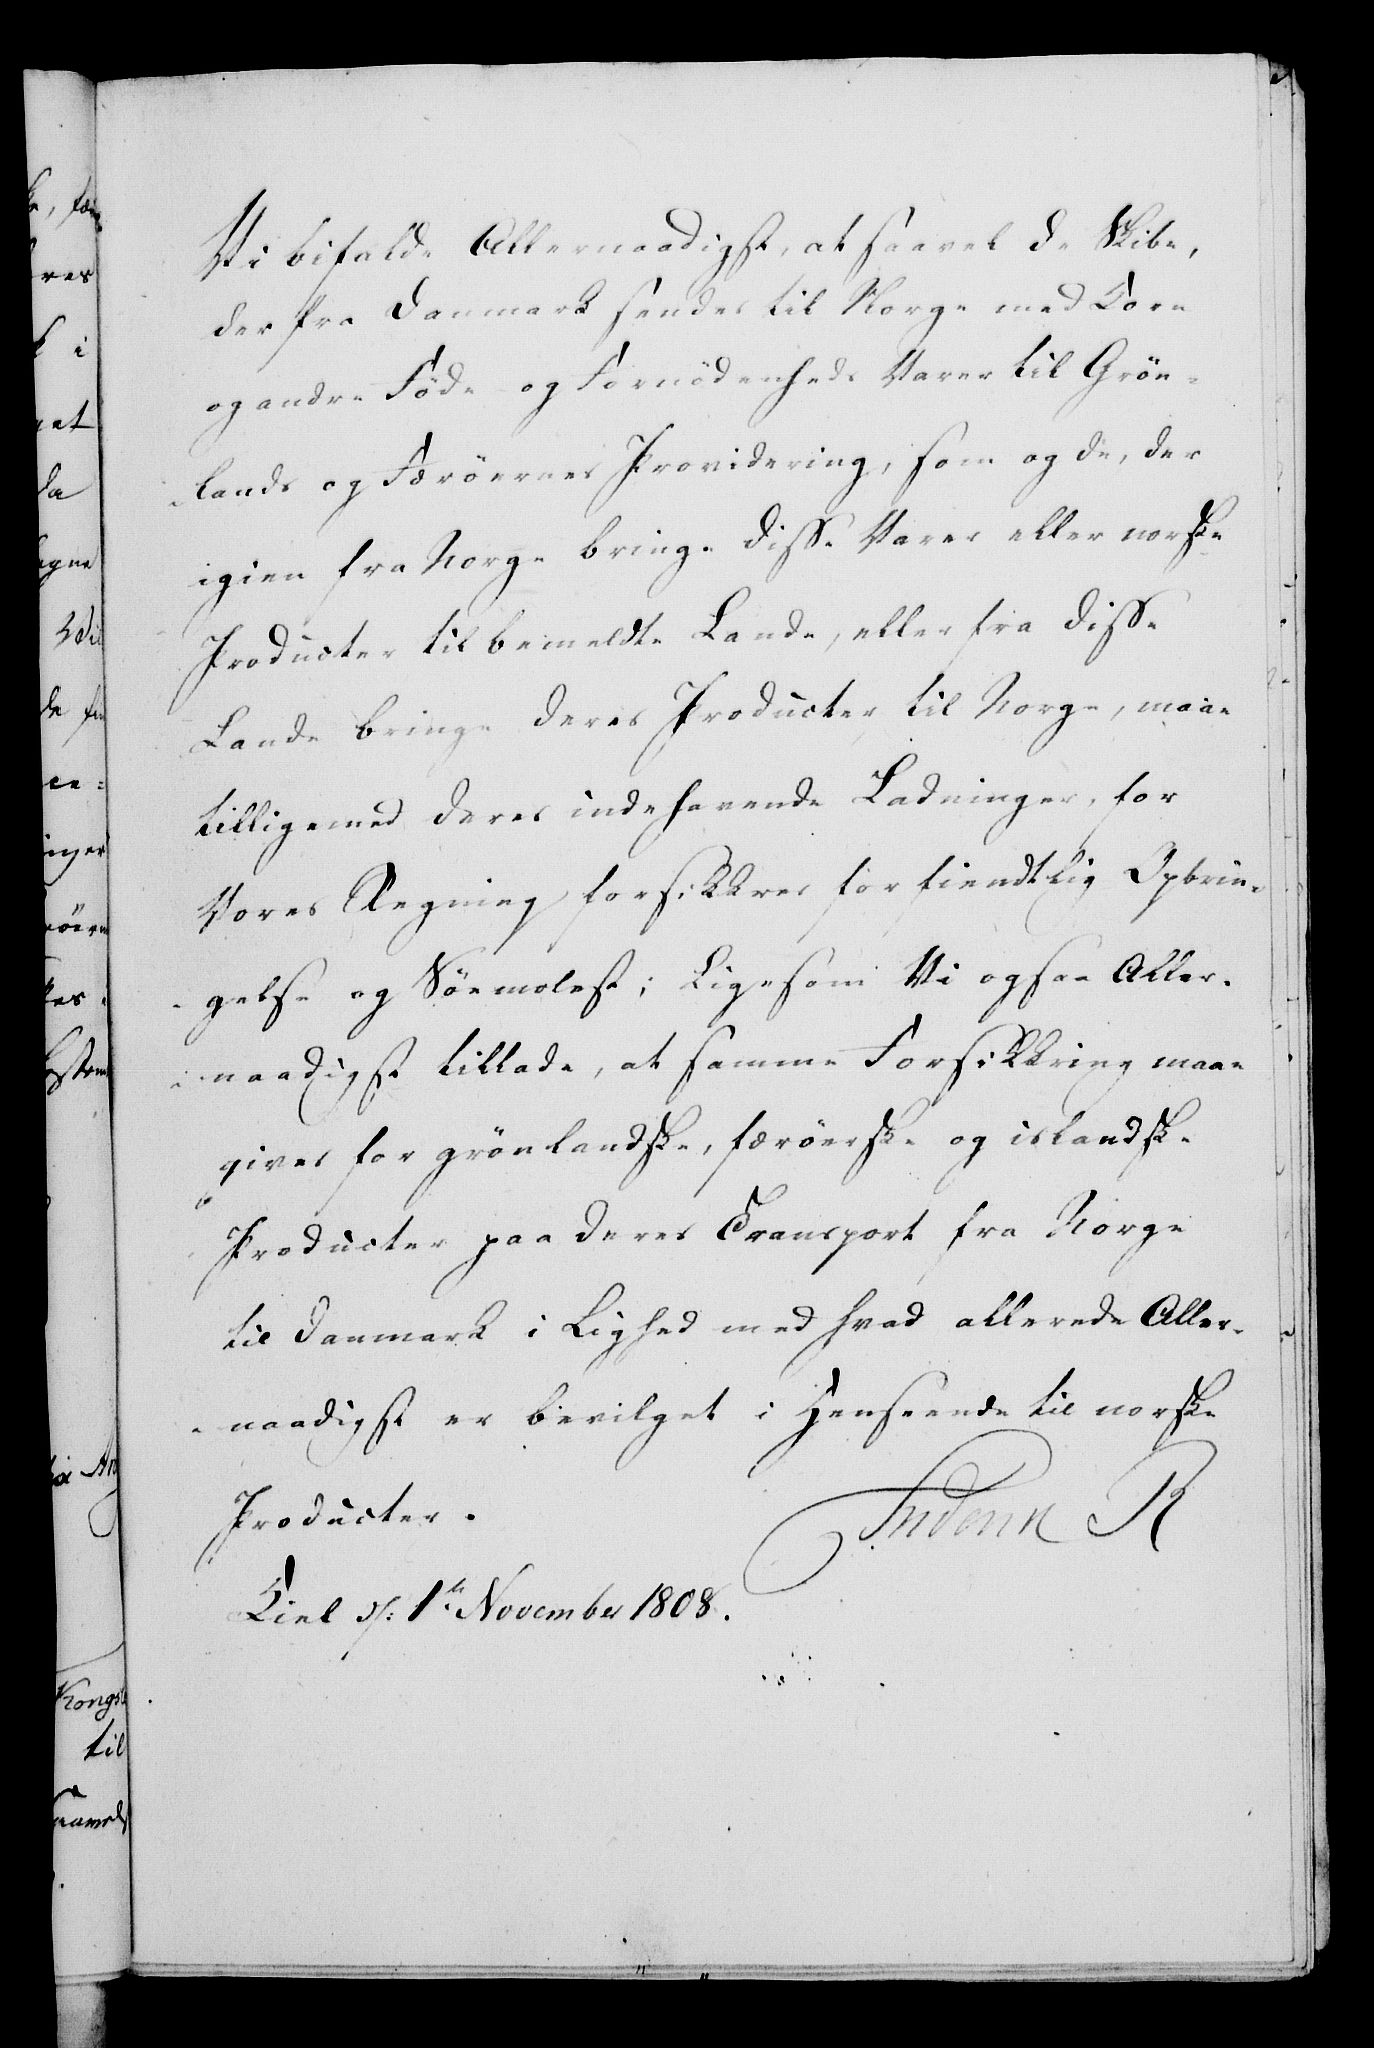 Vi bifalde Allernaadigst, at saavel de Skibe,
der fra Danmark sendes til Norge med Korn
og andre Föde og Fornödenheds Varer til Grön-
-lands og Færöernes Providering, som og de, der
igien fra Norge bringe disse Varer eller norske
Producter til bemeldte Lande, eller fra disse
Lande bringe deres Producter til Norge, maae
tilligemed deres indehavende Ladninger, for
Vores Regning forsikkres for fiendtlig Opbrin-
-gelse og Söemolest; Ligesom Vi ogsaa Aller-
-naadigst tillade, at samme Forsikkring maae
gives for grönlandske, færöerske og islandske
Producter paa deres Transport fra Norge
til Danmark i Lighed med hvad allerede Aller-
-naadigst er bevilget i Henseende til norske
Producter.
Frederik R
Kiel d: 1te November 1808.